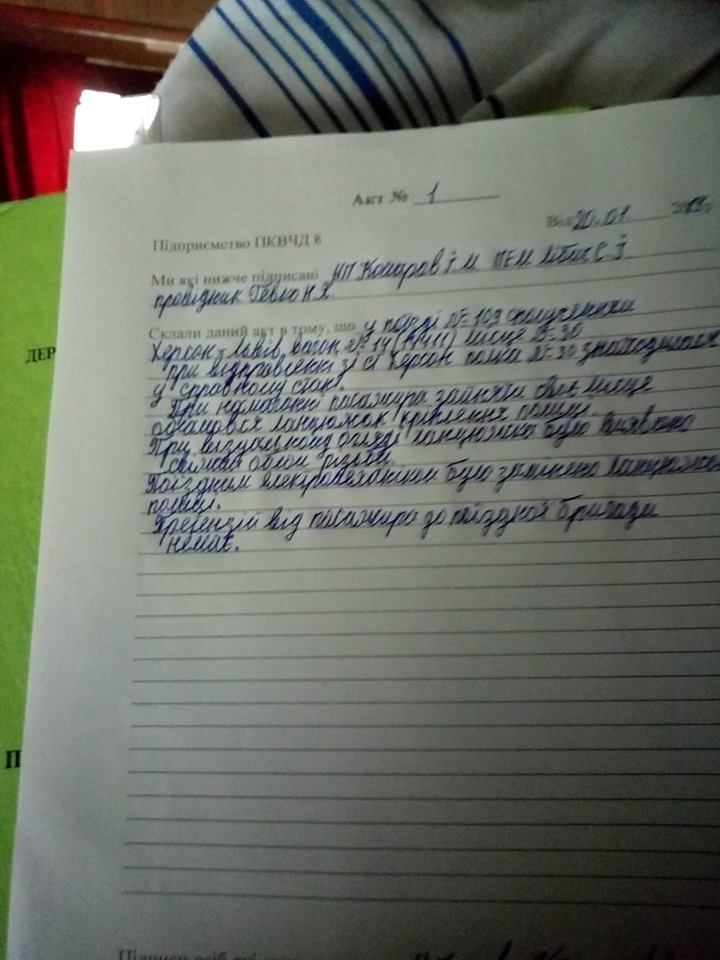 Акт № 1
Від 20.01 20
Підприємство ПКВЧД 8
Ми які нижче підписані НП Комаров І.М. ПЕМ С.І.
провідник Н.Я.
Склали даний акт в тому, що у поїзді № 109 сполученням
Херсон-Львів, вагон № 14 місце № 30
при відправленні зі ст Херсон полка № 30 знаходилася
у справному стані.
При намаганні пасажира зайняти своє місце
обламався ланцюжок кріплення полиці.
При візуальному огляді ланцюжка було виявлено
різьби.
Поїздним електромеханіком було замінено ланцюжок
полиці.
Претензій від пасажира до поїздної бригади
немає.
ДЕР
П